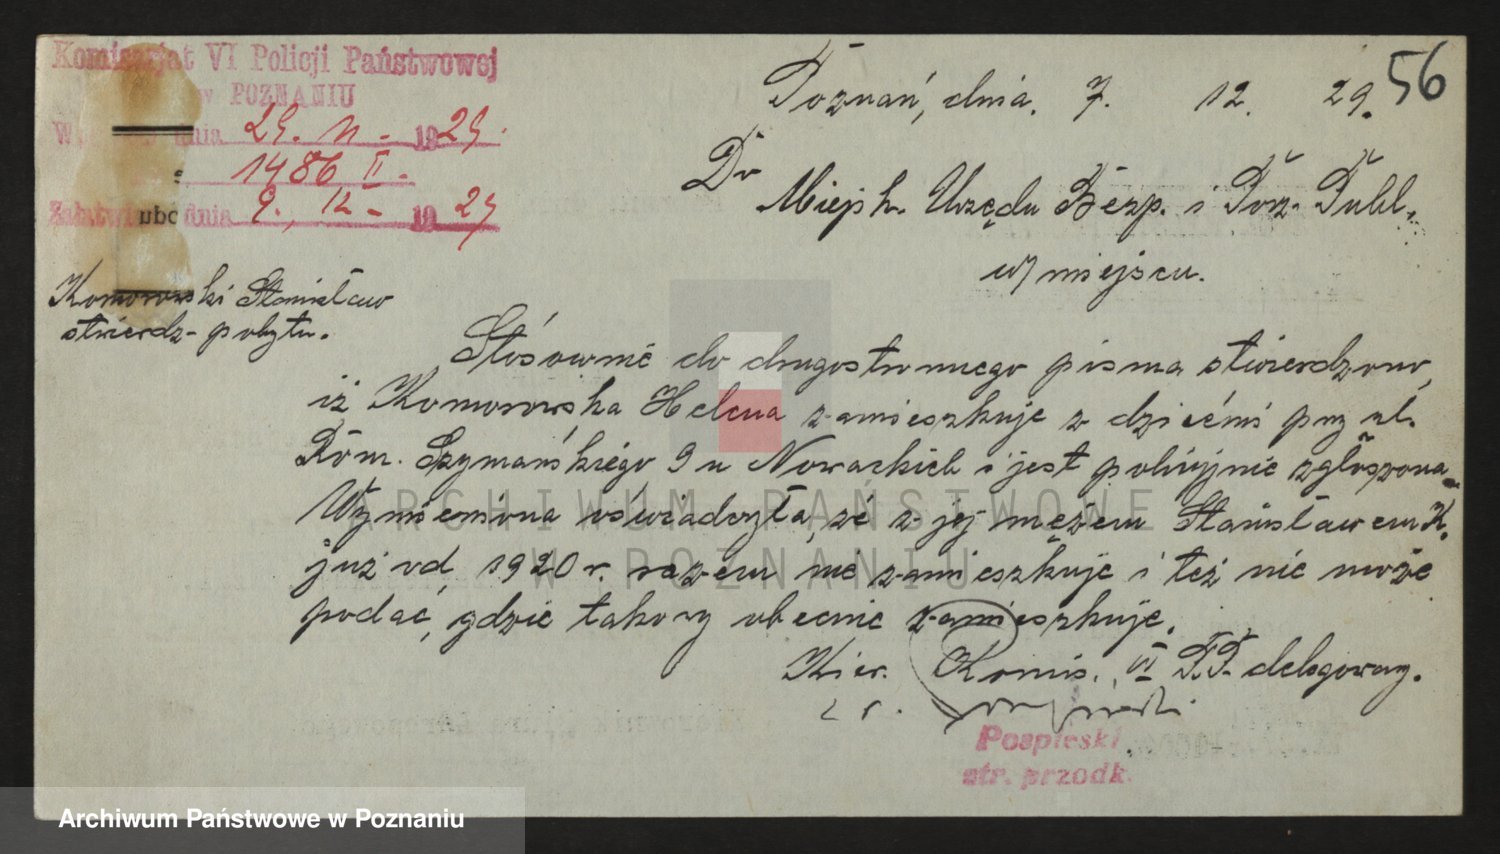 Komisarjat VI Policji Państwowej
w POZNANIU
dnia 29. 11 - 1929.
1486 II -
Załatwi ubo dnia 9., 12 - 1929
56
Poznań, dnia. 7. 12. 29.
Do
Miejsk. Urzędu Bezp. i Porz. Publ.
w miejscu.
Komorowski Stanisław
stwierdz- pobytu.
Stósownie do drugostronnego pisma stwierdzono,
iż Komorowska Helena zamieszkuje z dziećmi przy ul.
Rom. Szymańskiego 9 u Nowackich i jest policyjnie zgłoszona.
Wymieniona oświadczyła, że z jej mężem Stanisławem K.
już od 1920 r. razem nie zamieszkuje i też nie może
podać, gdzie takowy obecnie zamieszkuje.
Kier. Komis. VI P.P. delegowany.
z r.
Pospieski
str. przodk.
ARCHIWUM PAŃSTWOWE
W POZNANIU
Archiwum Państwowe w Poznaniu